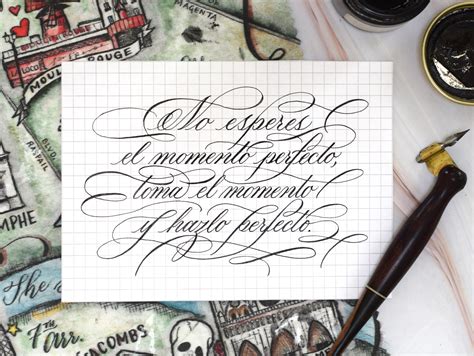 MAGENTA
MOULIN ROUGE
BLVD.
RASPAIL
No esperes
el momento perfecto,
toma el momento
y hazlo perfecto.
The
7th
arr.